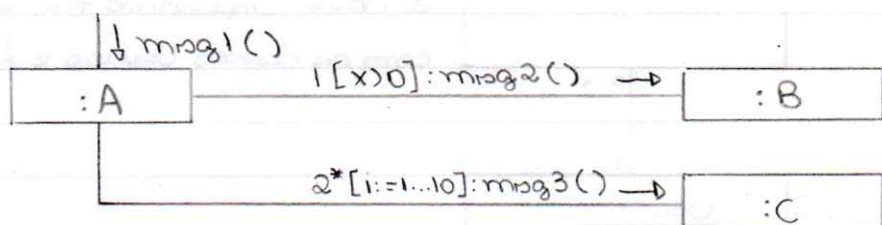 ↓ msg1()
:A
1[x>0]:msg2() →
:B
2*[i:=1...10]:msg3() →
:C